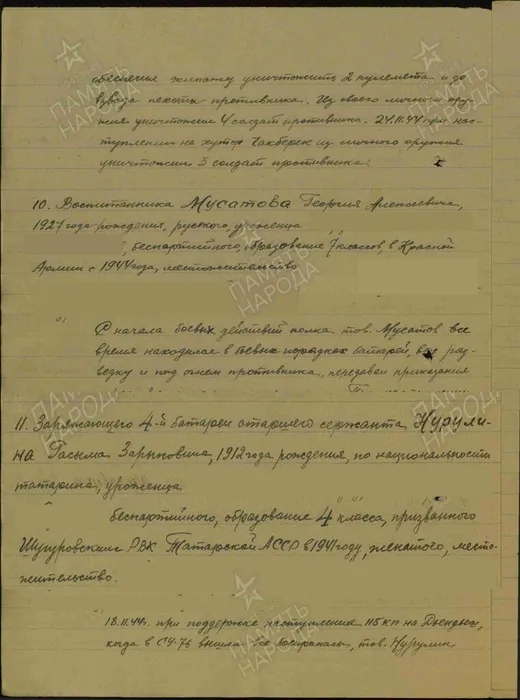 обеспечил экипажу уничтожить 2 пулемета и до
взвода пехоты противника. Из своего личного ору-
жия уничтожил 4 солдат противника. 24.11.44 при нас-
туплении на хутор Чакберек из личного оружия
уничтожил 3 солдат противника
10. Воспитанника Мусатова Георгия Алексеевича,
1927 года рождения, русского, уроженца
беспартийного, образование 7 классов, в Красной
Армии с 1944 года, местожительство
С начала боевых действий полка тов. Мусатов все
время находился в боевых порядках батарей, вел раз-
ведку и под огнем противника, передавал приказания
11. Заряжающего 4-й батареи старшего сержанта Нурули-
на Гасыма Зарыповича, 1912 года рождения, по национальности
татарина, уроженца
беспартийного, образование 4 класса, призванного
Шугуровским РВК Татарской АССР в 1941 году, женатого, место-
жительство.
18.11.44г. при поддержке наступления 115 кп на Дьендьеш,
когда в СУ-76 вышла тов. Нурулин
ПАМЯТЬ НАРОДА
ПАМЯТЬ НАРОДА
ПАМЯТЬ НАРОДА
ПАМЯТЬ НАРОДА
ПАМЯТЬ НАРОДА
ПАМЯТЬ НАРОДА